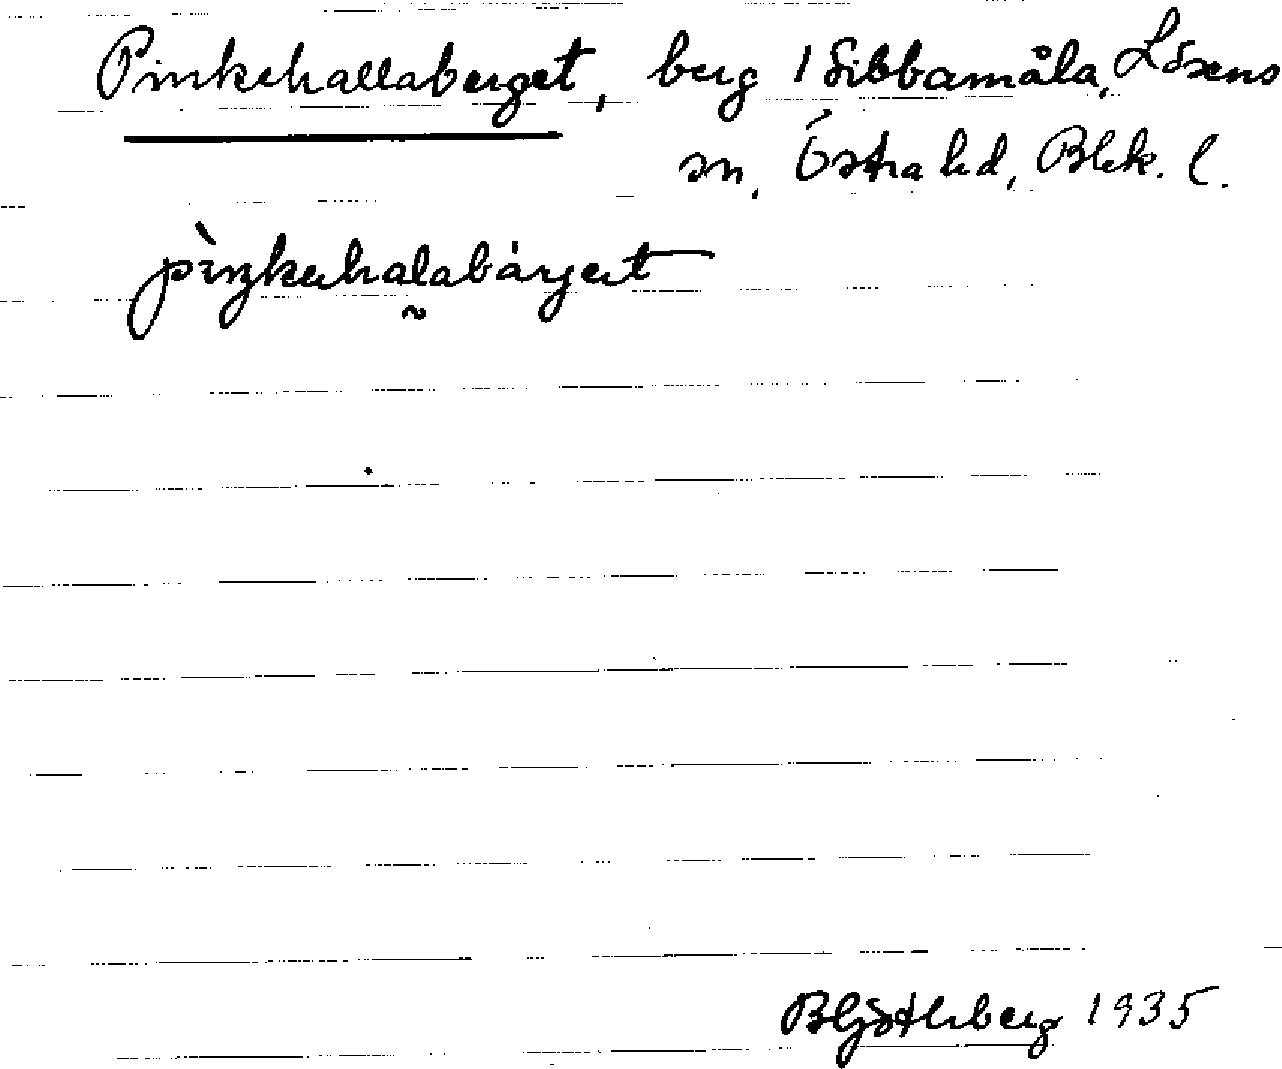 Pinkehallaberget, berg i Sibbamåla, Lösens
sn, Östra hd, Blek. l.
pìŋkəhalabárjət
B Götherberg 1935